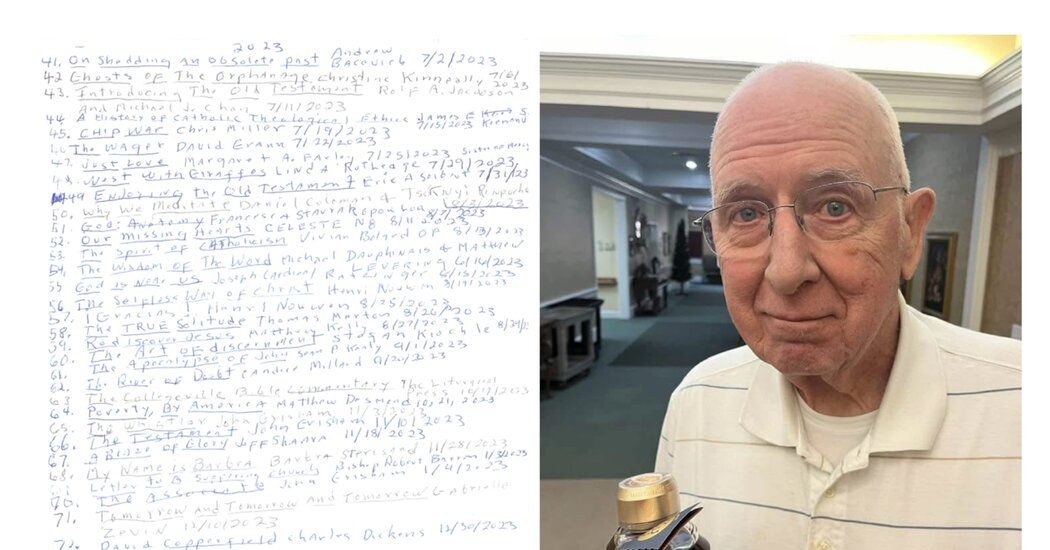 2023
41. On Shedding an Obsolete past Andrew Bacevich 7/2/2023
42 Ghosts of The Orphanage Christine Kenneally 7/6/2023
43. Introducing The Old Testament Rolf A. Jacobson
And Michael J. Chan 7/11/2023
44 A History of Catholic Theological Ethics James F Keenan S 7/15/2023
45. CHIP WAR Chris Miller 7/19/2023
46 The WAGER DAVID Grann 7/22/2023
47. Just Love Margaret A. Farley 7/25/2023 Sister of Mercy
48. West With Giraffes LINDA Rutledge 7/29/2023
49 Enjoying the Old Testament Eric A 7/31/23
50. Why We Meditate Daniel Goleman & Tsoknyi Rinpoche 8/3/2023
51. God: Anatomy Francesca Stavrakopoulou 8/7/2023
52. Our Missing Hearts CELESTE NG 8/11/2023
53. The Spirit of Catholicism Vivian Boland OP 8/13/2023
54. The Wisdom of The Word Michael Dauphinais & Matthew
LEVERING 8/14/2023
55 God is Near Us Joseph Cardinal Ratzinger 8/15/2023
56 The Selfless Way of Christ Henri Nouwen 8/19/2023
57. Gracias! Henri Nouwen 8/25/2023
58. The TRUE Solitude Thomas Merton 8/26/2023
59. Rediscover Jesus Matthew Kelly 8/27/2023
60. The Art of discernment Stefan Kiechle 8/29/23
61. The Apocalypse of John Sean P Kealy 9/1/2023
62. The River of Doubt Candice Millard 9/20/2023
63 The Collegeville Bible Commentary The Liturgical
Press 10/19/2023
64. Poverty, By America Matthew Desmond 10/21, 2023
65. The Whistler John Grisham 11/3/2023
66. The Testament John Grisham 11/10/2023
67. A Blaze of Glory JEFF Shaara 11/18/2023
68. My Name is Barbra Barbra Streisand 11/28/2023
Letter to A Suffering Church Bishop Robert Barron
70. The Associate John Grisham
71. Tomorrow and Tomorrow And Tomorrow Gabrielle
Zevin 12/10/2023
72. David Copperfield Charles Dickens 12/30/2023